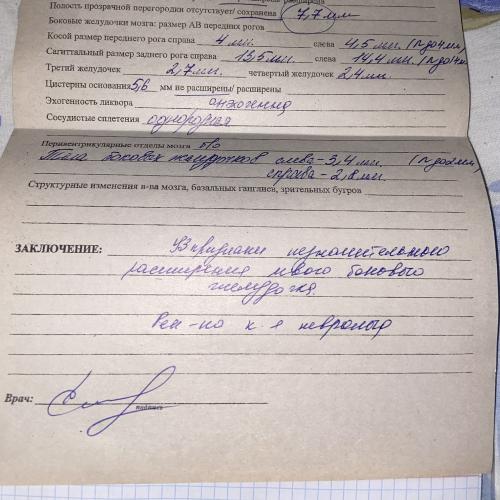 Полость прозрачной перегородки отсутствует/ сохранена 7,7 мм
Боковые желудочки мозга: размер АВ передних рогов
Косой размер переднего рога справа 4 мм. слева 4,5 мм. (N до 4 мм)
Сагиттальный размер заднего рога справа 13,5 мм. слева 14,4 мм.
Третий желудочек 2,7 мм. четвертый желудочек 2,4 мм.
Цистерны основания 5,6 мм не расширены/ расширены
Эхогенность ликвора анэхогенна
Сосудистые сплетения однородная
Перивентрикулярные отделы мозга
Тела боковых желудочков слева - 3,4 мм.
справа - 2,8 мм.
Структурные изменения в-ва мозга, базальных ганглиев, зрительных бугров
ЗАКЛЮЧЕНИЕ: УЗ признаки незначительного
расширения левого бокового
желудочка.
Рек-но к-я невролога
Врач:
подпись